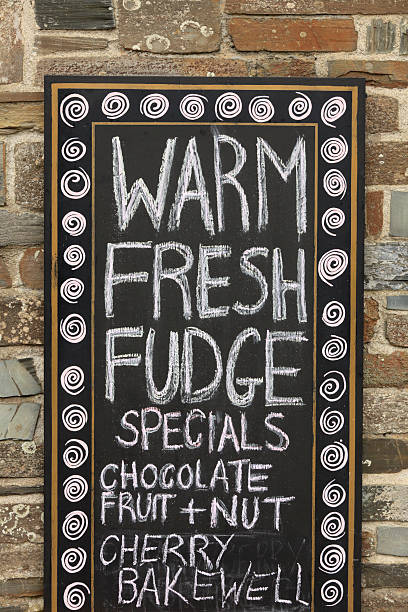 WARM
FRESH
FUDGE
SPECIALS
CHOCOLATE
FRUIT + NUT
CHERRY
BAKEWELL